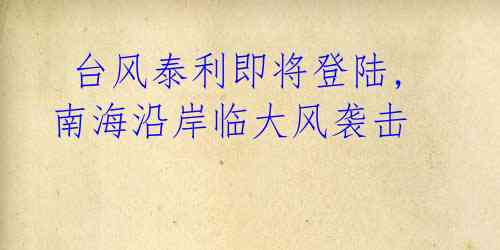 台风泰利即将登陆,
南海沿岸临大风袭击